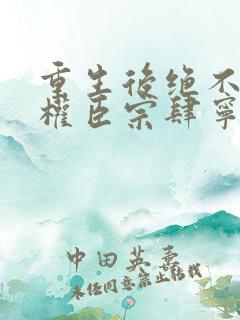 重生後绝不
權臣宗肆寧
中田英壽
未经同意禁止转载